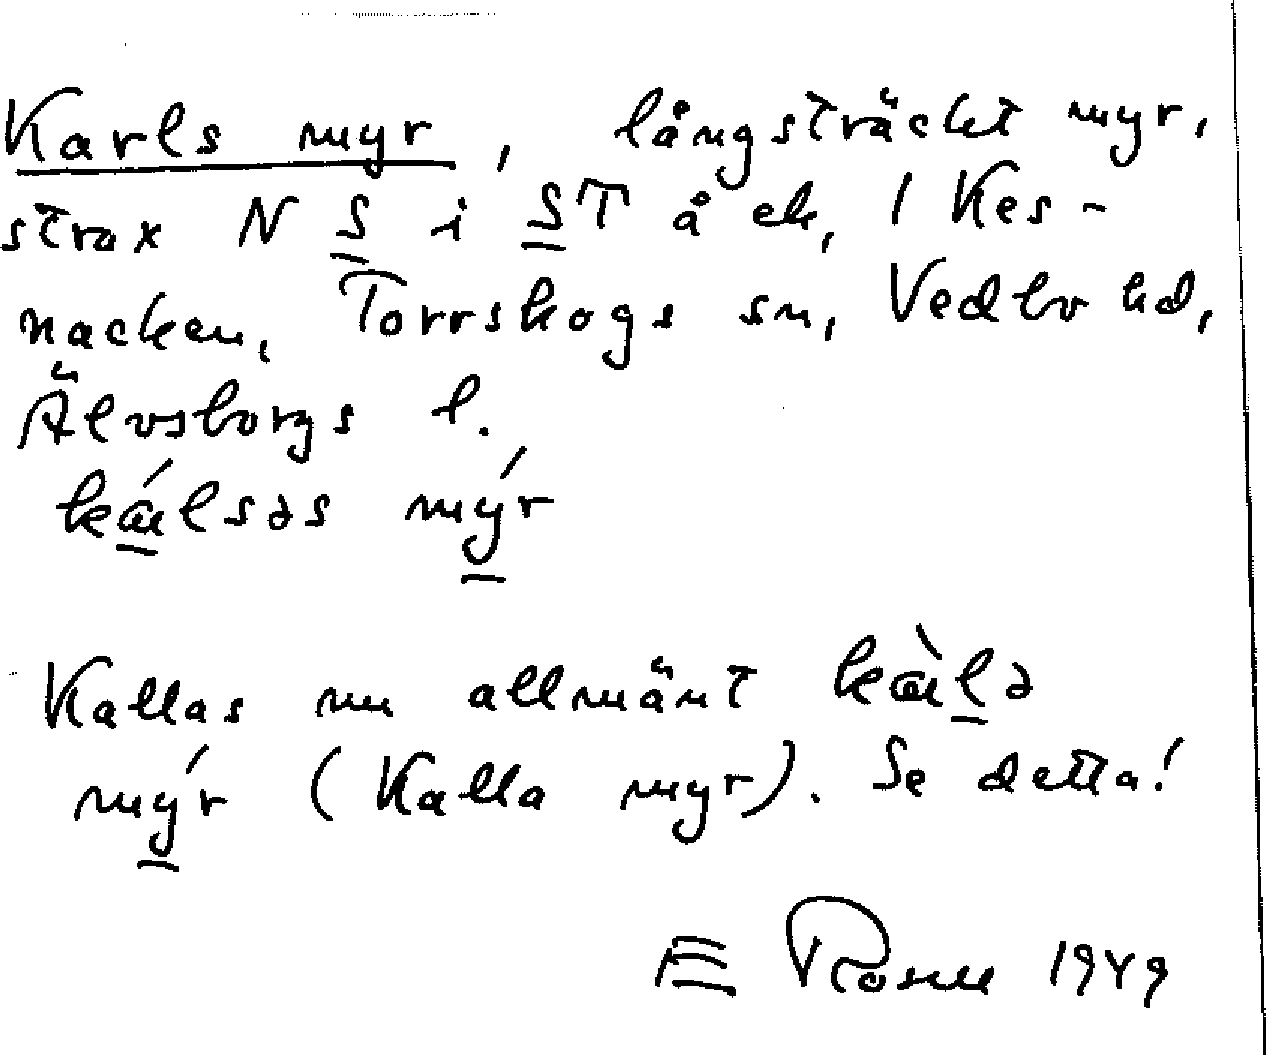 Karls myr, långsträckt myr,
strax N S i ST å ek, 1 Kes-
nacken, Torrskogs sn, Vedbo hd,
Älvsborgs l.
myŕ
Kallas nu allmänt
myŕ (Kalla myr). Se detta!
E 1949